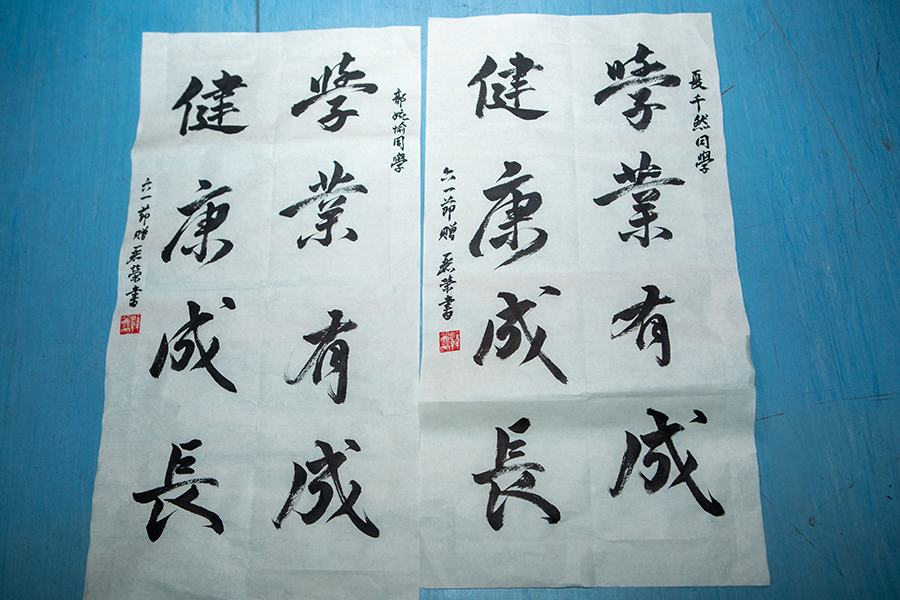 夏千然同學
學業有成
健康成長
六一節贈 聶榮書
郭婉愉同學
學業有成
健康成長
六一節贈 聶榮書